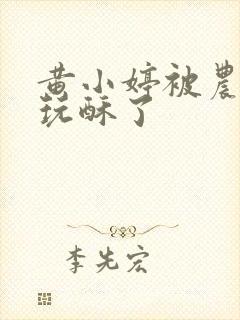 黄小婷被農
玩酥了
李先宏